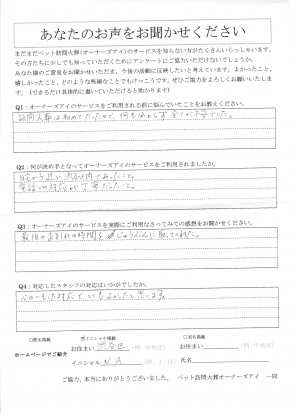 あなたのお声をお聞かせください
まだまだペット訪問火葬(オーナーズアイ)のサービスを知らない方がたくさんいらっしゃいます。
その方たちに少しでも知っていただくためにアンケートにご協力いただけないでしょうか。
あなた様のご意見をお聞かせいただき、今後の活動に反映したいと考えています。よかったこと、
嬉しかったこと、どのような些細なことでもけっこうです。ぜひご協力をよろしくお願いいたします。(できるだけ具体的に書いていただけると助かります)
Q1：オーナーズアイのサービスをご利用される前に悩んでいたことをお教えください。
訪問火葬は初めてだったので、何も分からず全てが不安でした。
Q2：何が決め手となってオーナーズアイのサービスをご利用されましたか。
自宅から近い渋谷区内であったこと。
電話での対応が丁寧だったこと。
Q3：オーナーズアイのサービスを実際にご利用なさってみての感想をお聞かせください。
最後のお別れの時間をじゅうぶんに取ってくれた。
Q4：対応したスタッフの対応はいかがでしたか。
心のこもった対応でとてもよかったと思います。
□匿名掲載 ☑イニシャル掲載 □実名掲載
お住まい 渋谷区 (例：中央区) お住まい (例：中央区)
ホームページでご紹介
イニシャル N A (例：I．H) 氏名
ご協力、本当にありがとうございました。 ペット訪問火葬オーナーズアイ 一同